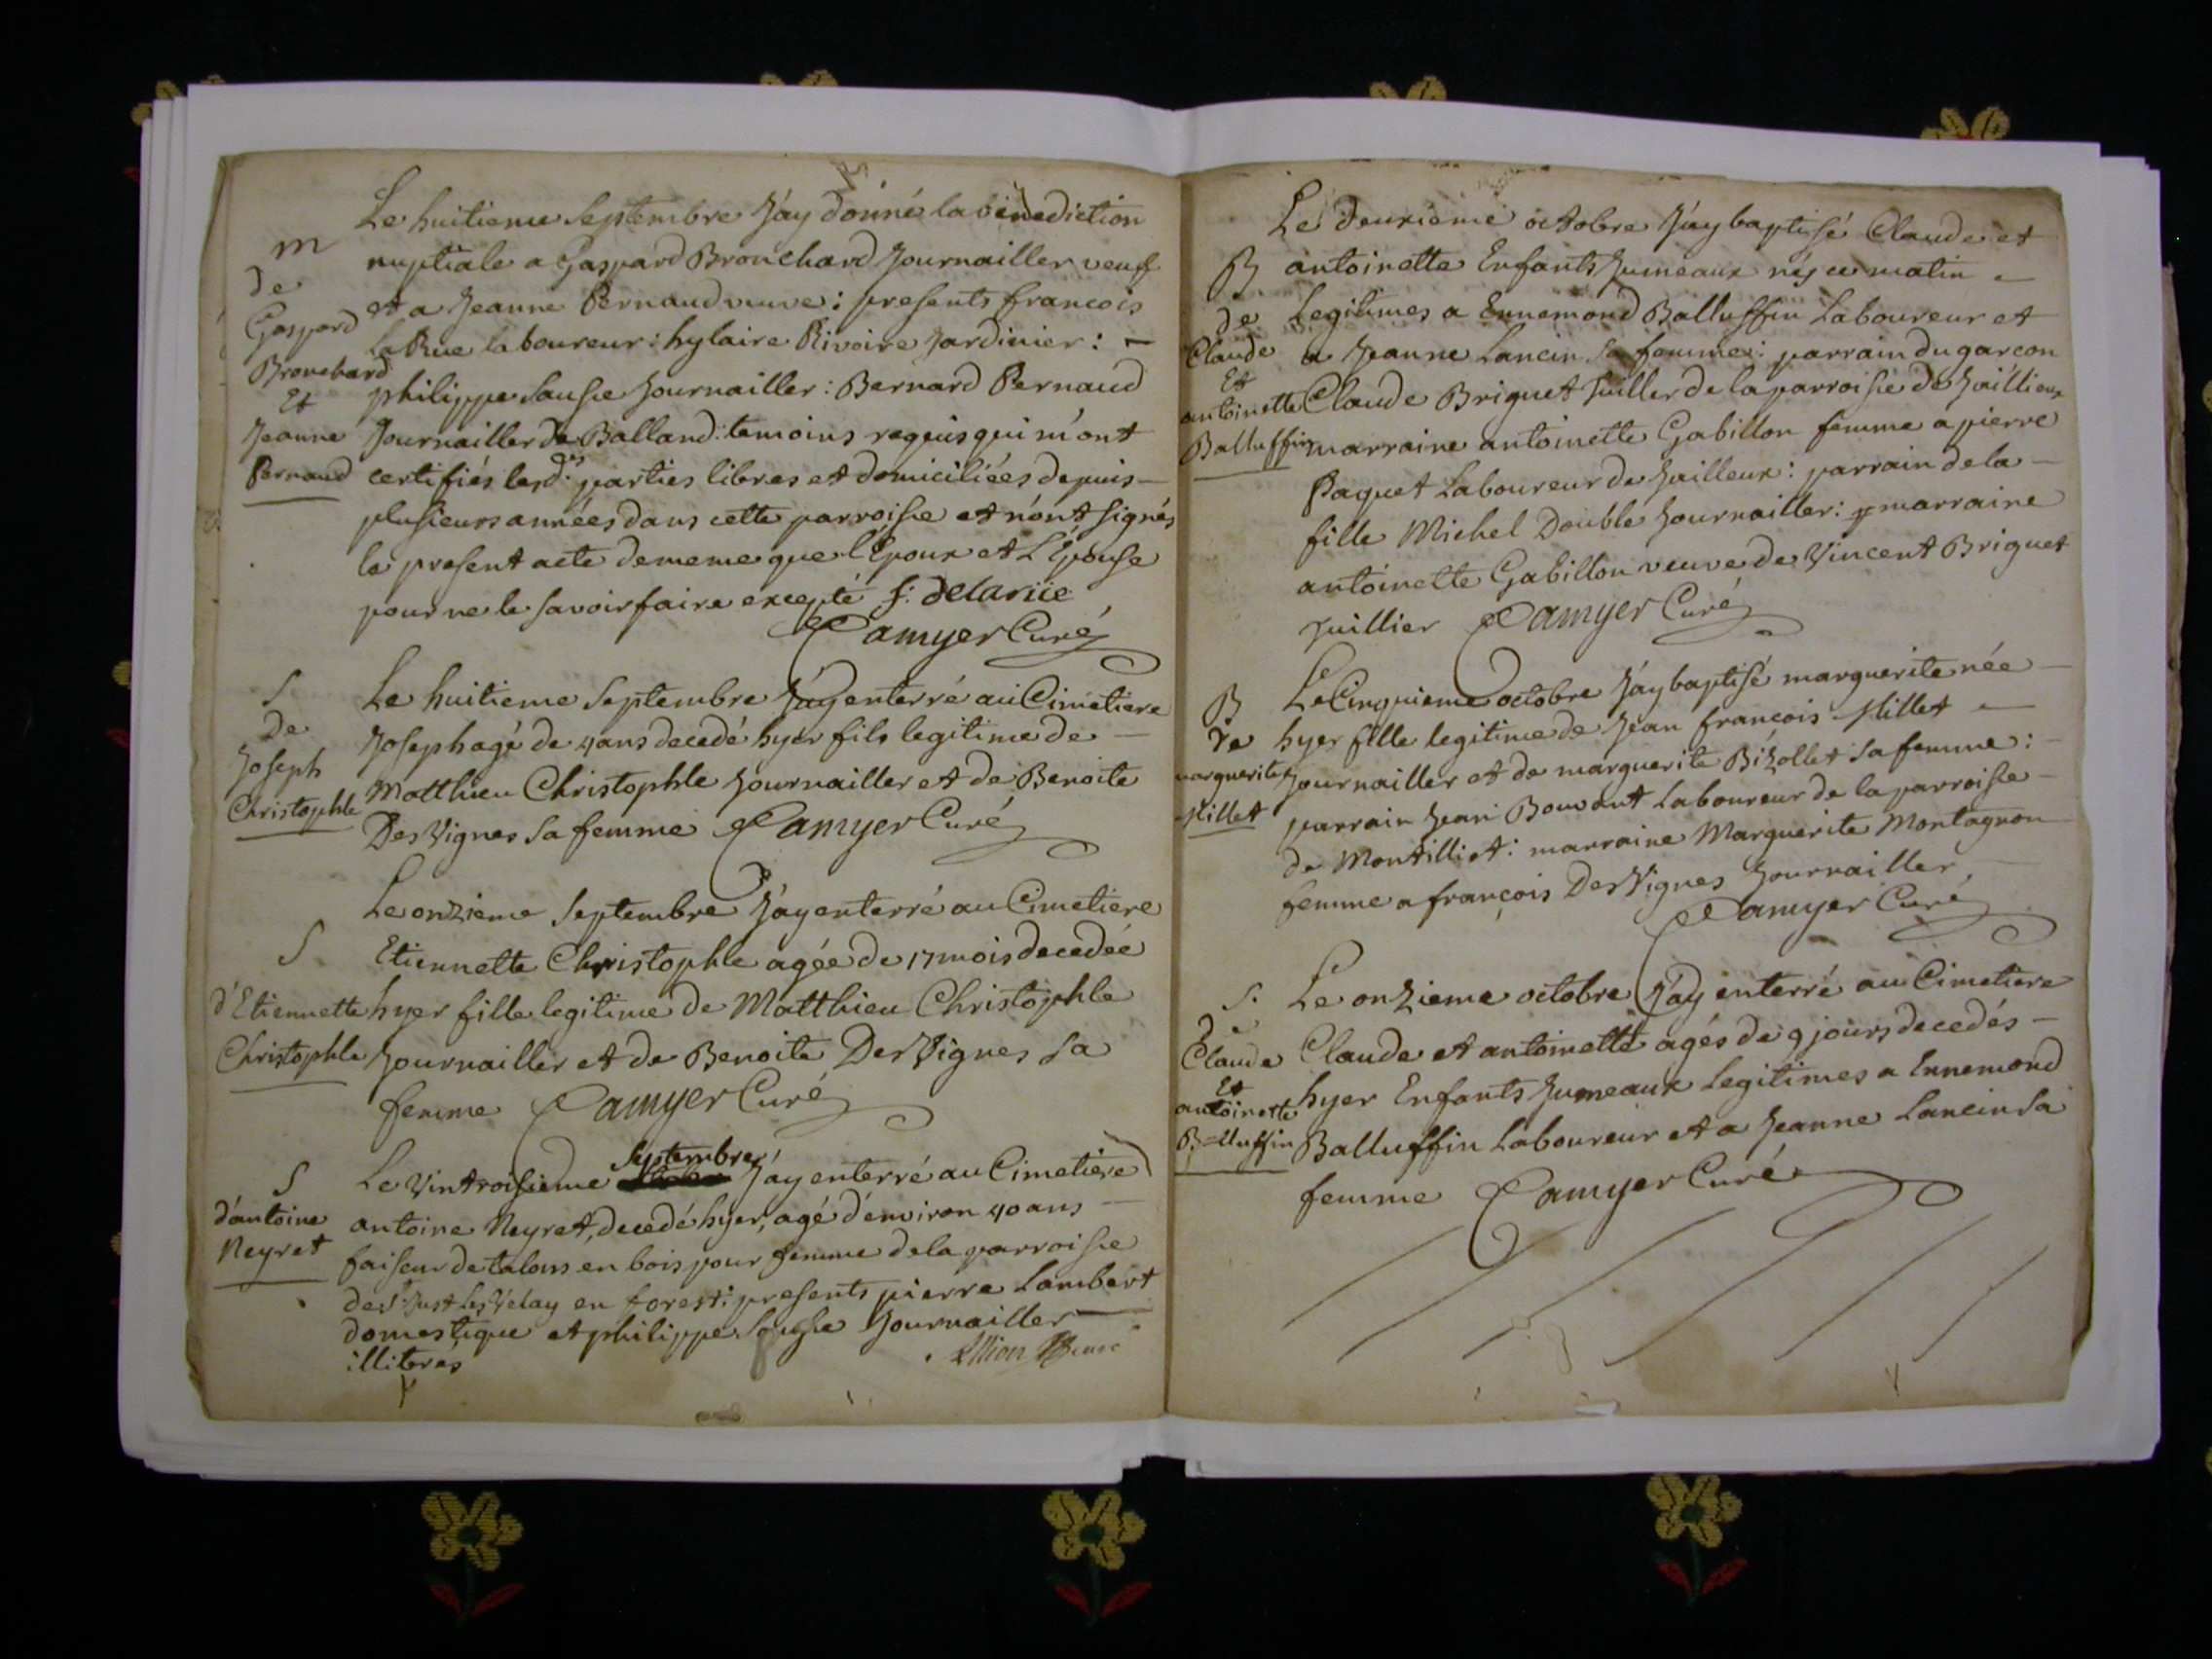 Le huitieme Septembre J'ay donné la benediction
m
nuptiale a Gaspard Brouchard Journailler veuf
de
Gaspard
et a Jeanne Pernaud veuve : presents francois
LaRue laboureur : hylaire Rivoire Jardinier : -
Brouchard
Et
philippe Sausse Journailler : Bernard Pernaud
Jeanne
Journailler de Balland : temoins requis qui m'ont
Pernaud
certifiés lesd.es parties libres et domiciliées depuis -
plusieurs années dans cette parroisse et n'ont signés
le present acte dememe que l'Epoux et L'Epouse
pour ne le savoir faire excepté f: delarüe
Camyer Curé
S
de
Joseph
Christophle
Le huitieme Septembre J'ay enterré au Cimetiere
Joseph agé de 4 ans decedé hyer fils legitime de -
Matthieu Christophle Journailler et de Benoite
DesVignes Sa femme Camyer Curé
S
d'Etiennette
Christophle
Le onzieme Septembre J'ay enterré au Cimetiere
Etiennette Christophle agée de 17 mois decedée
hyer fille legitime de Matthieu Christophle
Journailler et de Benoite DesVignes Sa
femme Camyer Curé
S
d'antoine
Neyret
Septembre
Le Vintroisieme J'ay enterré au Cimetiere
antoine Neyret, decedé hyer, agé d'environ 40 ans -
faiseur de talons en bois pour femme de la parroisse
de St. Just Les Velay en forest : presents pierre Lambert
domestique et philippe Sausse Journailler
illiterés
Le deuxieme octobre J'ay baptisé Claude et
B
de
Claude
Et
antoinette
Balluffin
antoinette Enfants Jumeaux nés ce matin -
Legitimes a Ennemond Balluffin Laboureur et
a Jeanne Lancin Sa femme : parrain du garcon
Claude Briquet Juillier de la parroisse de Jaillieux
marraine antoinette Gabillon femme a pierre
Paquet Laboureur de Jailleux : parrain de la -
fille Michel Double Journailler : marraine
antoinette Gabillon veuve de Vincent Briquet
Juillier Camyer Curé
B
de
marguerite
Millet
Le Cinquieme octobre J'ay baptisé marguerite née -
hyer fille legitime de Jean francois Millet -
Journailler et de marguerite Bizollet Sa femme : -
parrain Jean Bouvant Laboureur de la parroisse -
de Montilliet : marraine Marguerite Montagnon
femme a françois DesVignes Journailler,
Camyer Curé
S.
de
Claude
Et
antoinette
Balluffin
Le onzieme octobre J'ay enterré au Cimetiere
Claude et antoinette agés de 9 jours decedés -
hyer Enfants Jumeaux Legitimes a Ennemond
Balluffin Laboureur et a Jeanne Lancin Sa
femme Camyer Curé